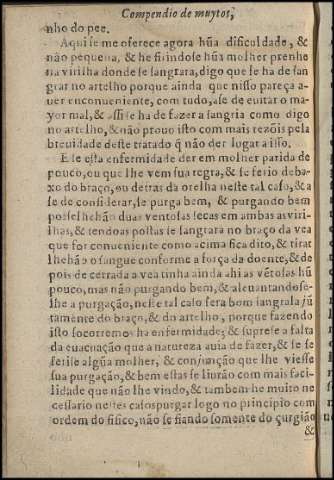 Compendio de muytos,
nho do pee.
Aqui se me oferece agora hũa dificuldade, &
não pequena, & he firindose hũa molher prenhe
na virilha donde se sangrara, digo que se ha de san
grar no artelho porque ainda que nisso pareça a-
uer enconueniente, com tudo, ase de euitar o ma-
yor mal, & assi se ha de fazer a sangria como digo
no artelho, & não prouo isto com mais rezõis pela
breuidade deste tratado q̃ não der lugar a isso.
E se esta enfermidade der em molher parida de
pouco, ou que lhe vem sua regra, & se ferio deba-
xo do braço, ou detras da orelha neste tal caso, & a
se de considerar, se purga bem, & purgando bem
posselhehão duas ventosas secas em ambas as viri-
lhas, & tendoas postas se sangrara no braço da vea
que for conueniente como acima fica dito, & tirar
lhehão o sangue conforme a força da doente, & de
pois de cerrada a vea tinha ainda ahi as vẽtosas hũ
pouco, mas não purgando bem, & aleuantandose-
lhe a purgação, neste tal caso sera bom sangrala jũ
tamente do braço, & do artelho, porque fazendo
isto socorremos ha enfermidade, & suprese a falta
da euacuação que a natureza auia de fazer, & se se
ferisse algũa molher, & conjunção que lhe viesse
sua purgação, & bem estas se liurão com mais faci-
lidade que não lhe vindo, & tambem he muito ne
cessario nestes casos purgar logo no principio com
ordem do fisico, não se fiando somente do çurgião
&